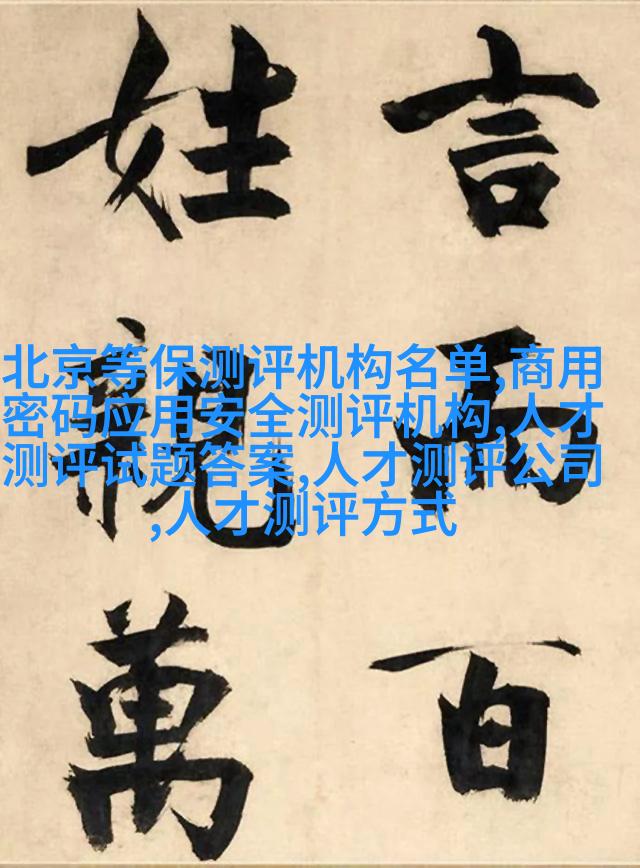 言而百
姓親萬
北京等保测评机构名单,商用
密码应用安全测评机构,人才
测评试题答案,人才测评公司
,人才测评方式